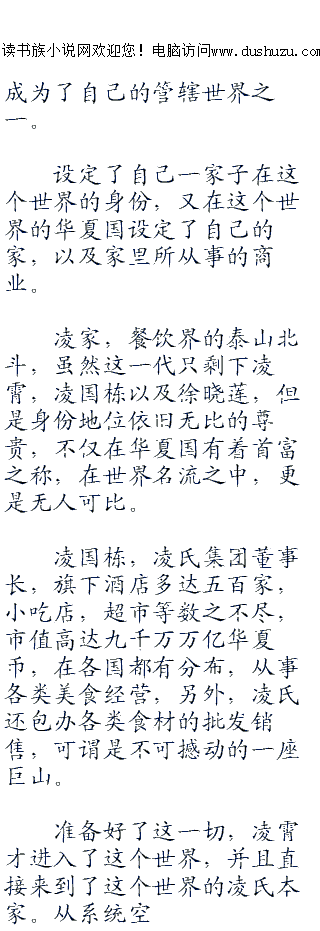 读书族小说网欢迎您！电脑访问www.dushuzu.com
成为了自己的管辖世界之
一。
设定了自己一家子在这
个世界的身份，又在这个世
界的华夏国设定了自己的
家，以及家里所从事的商
业。
凌家，餐饮界的泰山北
斗，虽然这一代只剩下凌
霄，凌国栋以及徐晓莲，但
是身份地位依旧无比的尊
贵，不仅在华夏国有着首富
之称，在世界名流之中，更
是无人可比。
凌国栋，凌氏集团董事
长，旗下酒店多达五百家，
小吃店，超市等数之不尽，
市值高达九千万万亿华夏
币，在各国都有分布，从事
各类美食经营，另外，凌氏
还包办各类食材的批发销
售，可谓是不可撼动的一座
巨山。
准备好了这一切，凌霄
才进入了这个世界，并且直
接来到了这个世界的凌氏本
家。从系统空